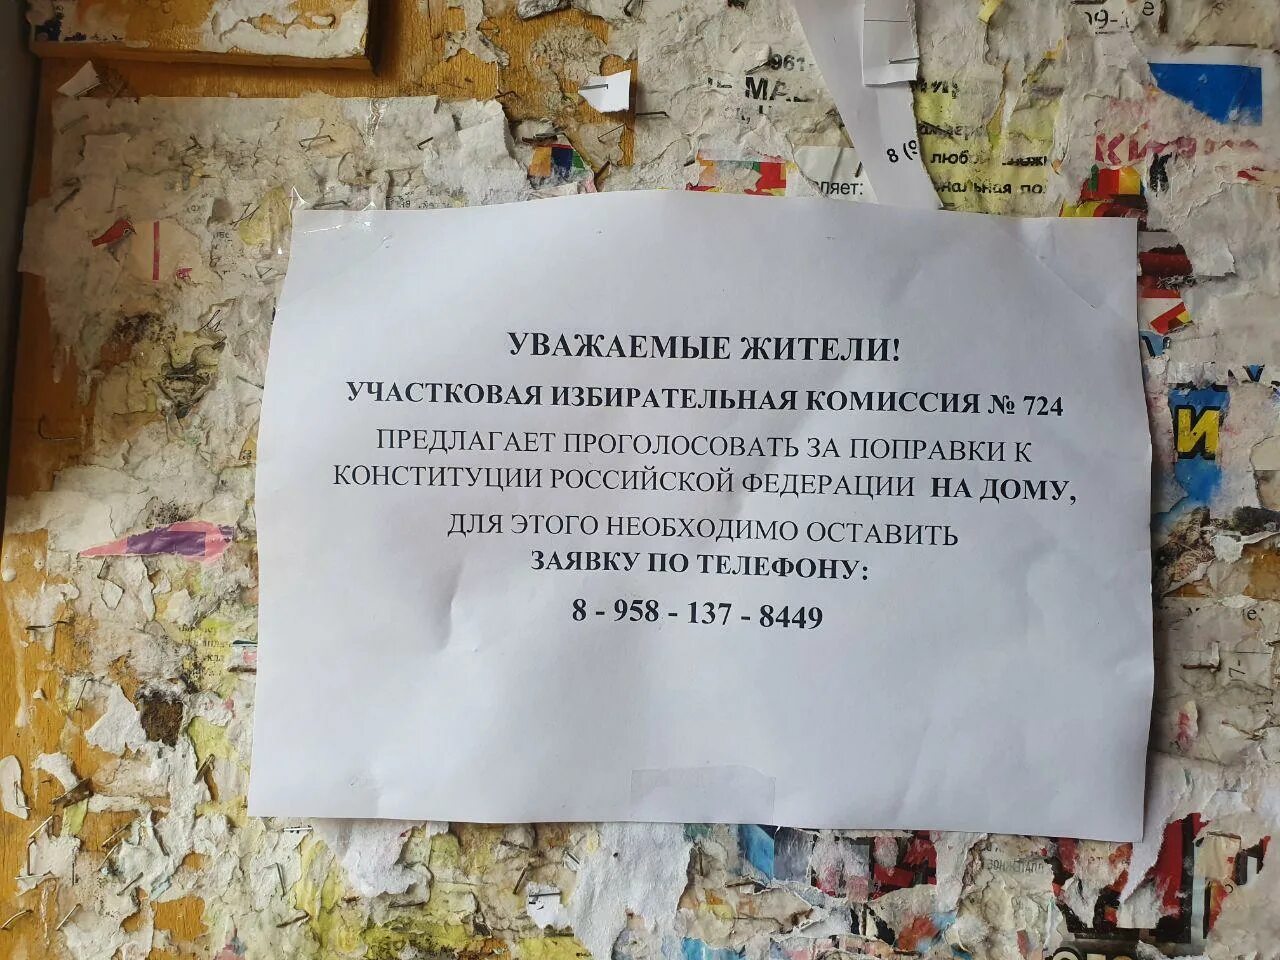 961-
МА
8 (9
любо
нальная по
ляет:
УВАЖАЕМЫЕ ЖИТЕЛИ!
УЧАСТКОВАЯ ИЗБИРАТЕЛЬНАЯ КОМИССИЯ № 724
ПРЕДЛАГАЕТ ПРОГОЛОСОВАТЬ ЗА ПОПРАВКИ К
КОНСТИТУЦИИ РОССИЙСКОЙ ФЕДЕРАЦИИ НА ДОМУ,
ДЛЯ ЭТОГО НЕОБХОДИМО ОСТАВИТЬ
ЗАЯВКУ ПО ТЕЛЕФОНУ:
8 - 958 - 137 - 8449
И